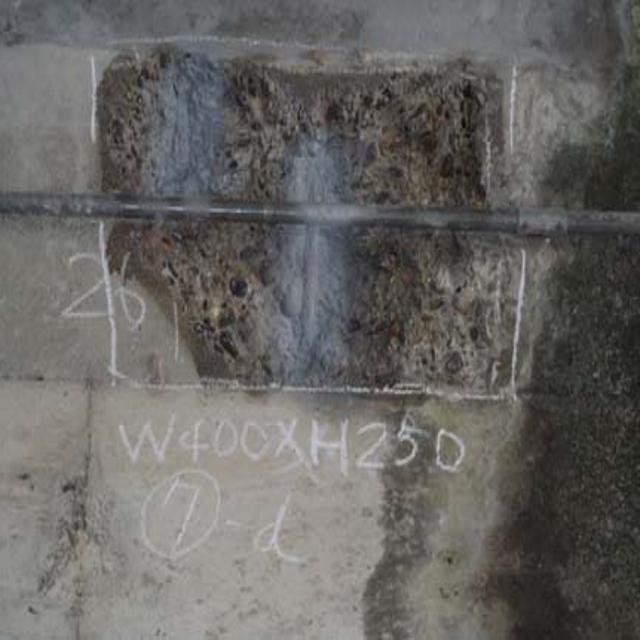 26
W400XH250
⑦-d